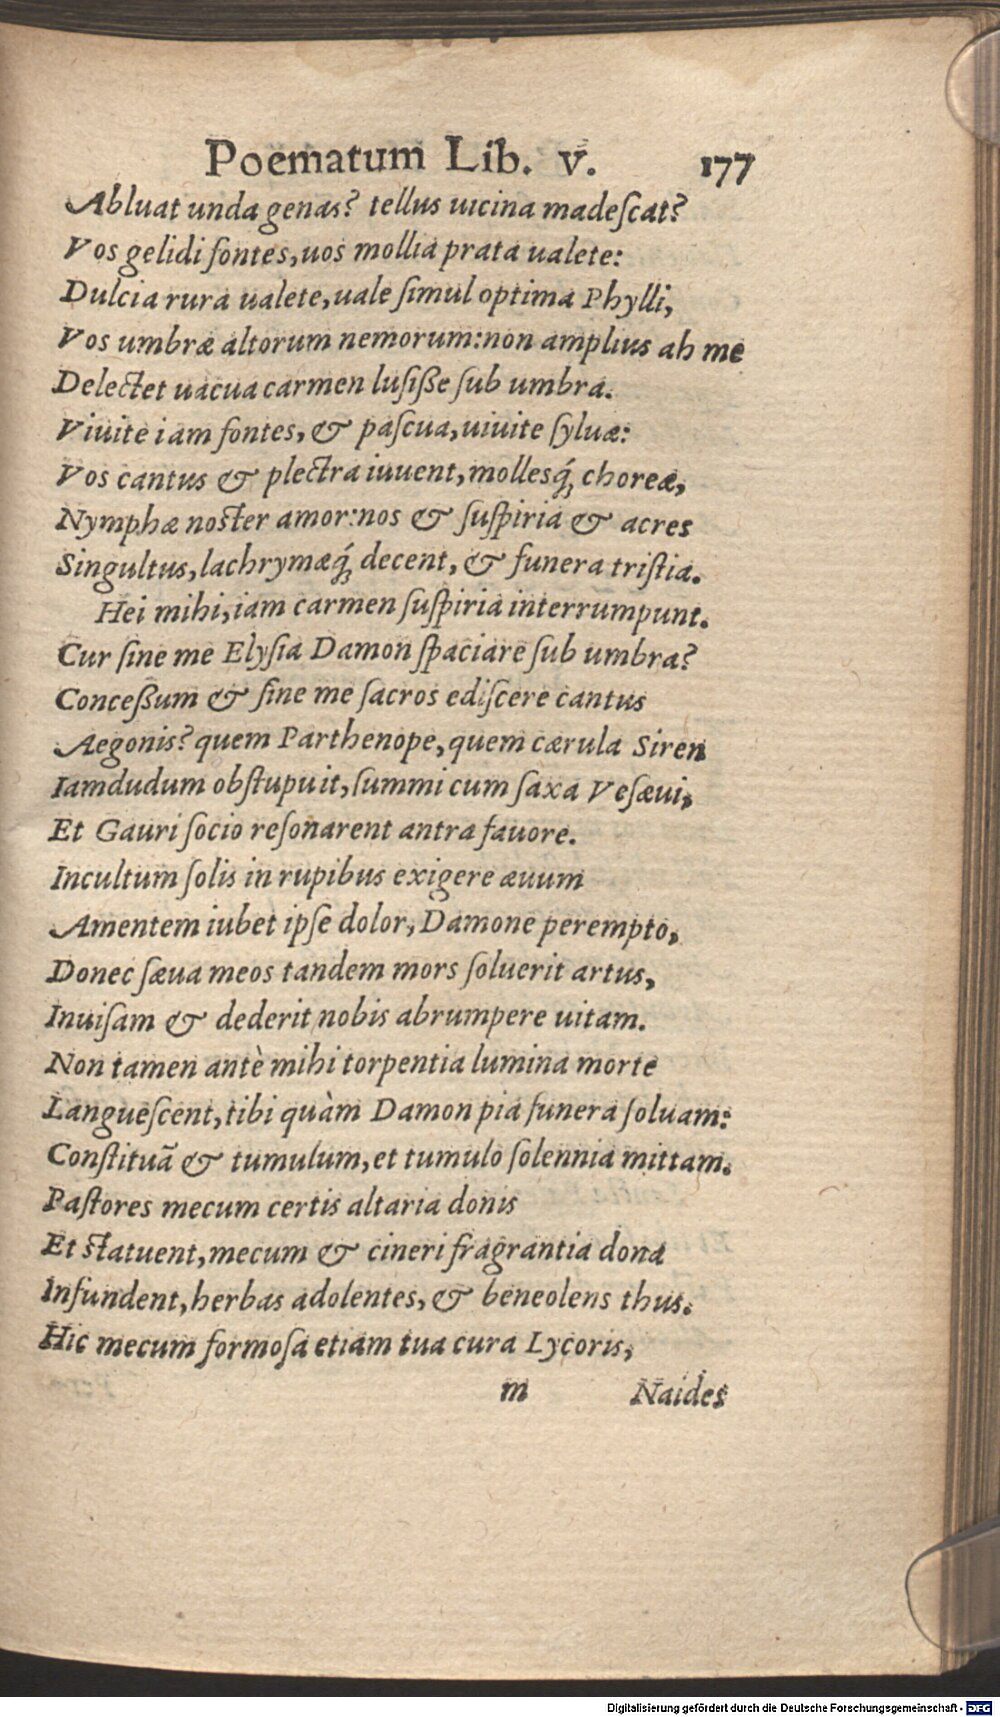 Poematum Lib. v. 177
Abluat unda genas? tellus uicina madeſcat?
Vos gelidi fontes, uos mollia prata ualete:
Dulcia rura ualete, uale ſimul optima Phylli,
Vos umbræ altorum nemorum: non amplius ah me
Delectet uacua carmen luſiſſe ſub umbra.
Viuite iam fontes, & paſcua, uiuite ſyluæ:
Vos cantus & plectra iuuent, molleſq́; choreæ,
Nymphæ noſter amor: nos & ſuſpiria & acres
Singultus, lachrymæq́; decent, & funera triſtia.
Hei mihi, iam carmen ſuſpiria interrumpunt.
Cur ſine me Elyſia Damon ſpaciare ſub umbra?
Conceßum & ſine me ſacros ediſcere cantus
Aegonis? quem Parthenope, quem cærula Siren
Iamdudum obſtupuit, ſummi cum ſaxa Veſæui,
Et Gauri ſocio reſonarent antra fauore.
Incultum ſolis in rupibus exigere æuum
Amentem iubet ipſe dolor, Damone perempto,
Donec ſæua meos tandem mors ſoluerit artus,
Inuiſam & dederit nobis abrumpere uitam.
Non tamen antè mihi torpentia lumina morte
Langueſcent, tibi quàm Damon pia funera ſoluam:
Conſtituã & tumulum, et tumulo ſolennia mittam.
Paſtores mecum certis altaria donis
Et ſtatuent, mecum & cineri fragrantia dona
Infundent, herbas adolentes, & beneolens thus.
Hic mecum formoſa etiam tua cura Lycoris,
m Naides
Digitalisierung gefördert durch die Deutsche Forschungsgemeinschaft - DFG